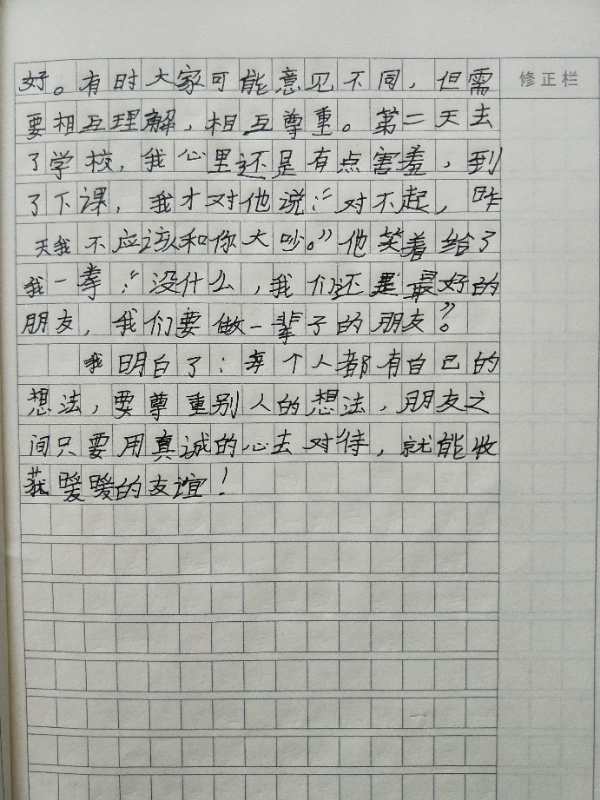 好。有时大家可能意见不同，但需
修正栏
要相互理解，相互尊重。第二天去
了学校，我心里还是有点害羞，到
了下课，我才对他说：“对不起，昨
天我不应该和你大吵。”他笑着给了
我一拳：“没什么，我们还是最好的
朋友，我们要做一辈子的朋友”。
我明白了：每个人都有自己的
想法，要尊重别人的想法，朋友之
间只要用真诚的心去对待，就能收
获暖暖的友谊！